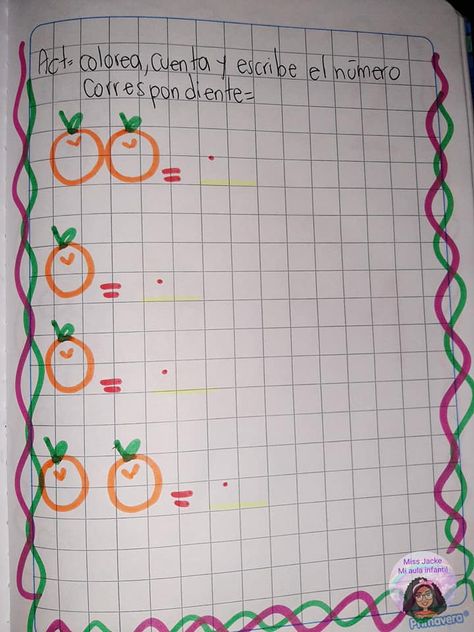 Act= colorea, cuenta y escribe el número
correspondiente=
=
=
=
=
Miss Jacke
Mi aula infantil
Primavera